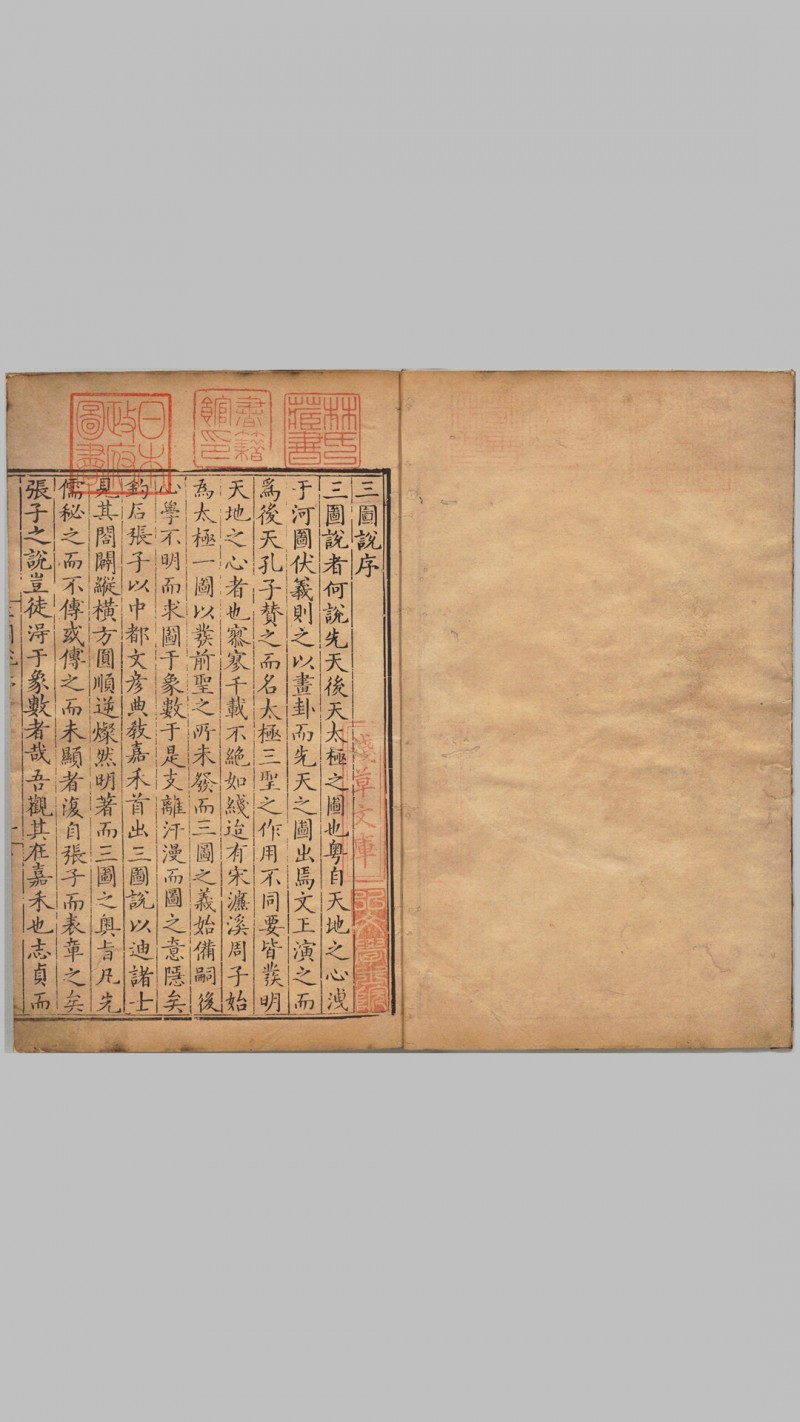 三圖說序
三圖說者何說先天後天太極之圖也粤自天地之心洩
于河圖伏羲則之以畫卦而先天之圖出焉文王演之而
爲後天孔子賛之而名太極三聖之作用不同要皆發明
天地之心者也寥寥千載不絶如綫迨有宋濂溪周子始
爲太極一圖以發前聖之所未發而三圖之義始備嗣後
心學不明而求圖于象數于是支離汗漫而圖之意隱矣
釣石張子以中都文彦典敎嘉禾首出三圖說以迪諸士
見其閤闢縱横方圓順逆燦然明著而三圖之奥旨凡先
儒秘之而不傳或傳之而未顯者復自張子而表章之矣
張子之說豈徒淂于象數者哉吾觀其在嘉禾也志貞而
林氏藏書
書籍館印
日本政府圖書
淺草文庫